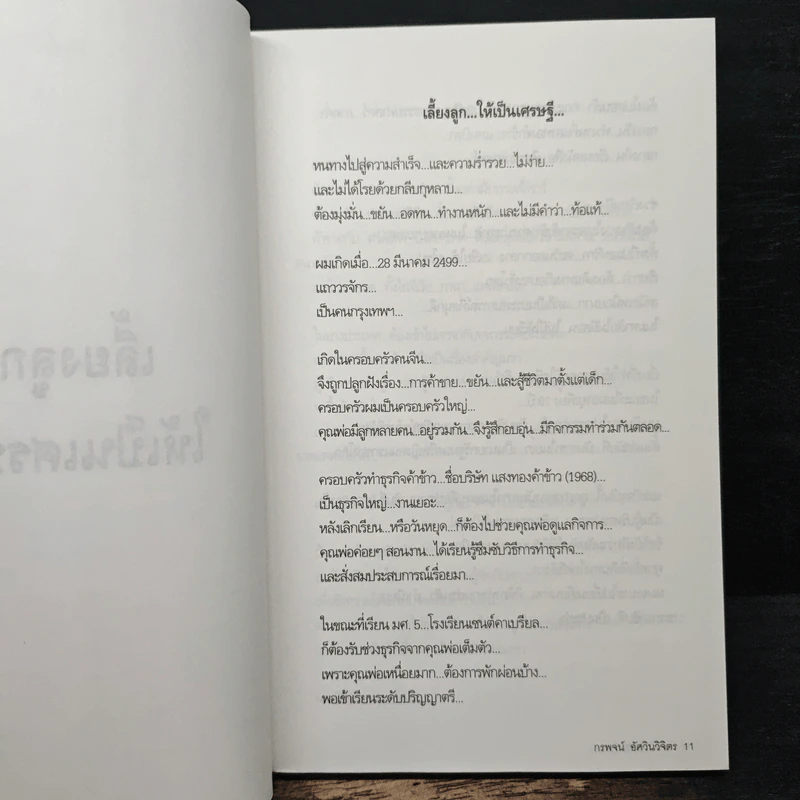 เลี้ยงลูก...ให้เป็นเศรษฐี...
หนทางไปสู่ความสำเร็จ...และความร่ำรวย...ไม่ง่าย...
และไม่ได้โรยด้วยกลีบกุหลาบ...
ต้องมุ่งมั่น...ขยัน...อดทน...ทำงานหนัก...และไม่มีคำว่า...ท้อแท้...
ผมเกิดเมื่อ...28 มีนาคม 2499...
แถววรจักร...
เป็นคนกรุงเทพฯ...
เกิดในครอบครัวคนจีน...
จึงถูกปลูกฝังเรื่อง...การค้าขาย...ขยัน...และสู้ชีวิตมาตั้งแต่เด็ก...
ครอบครัวผมเป็นครอบครัวใหญ่...
คุณพ่อมีลูกหลายคน...อยู่รวมกัน...จึงรู้สึกอบอุ่น...มีกิจกรรมทำร่วมกันตลอด...
ครอบครัวทำธุรกิจค้าข้าว...ชื่อบริษัท แสงทองค้าข้าว (1968)...
เป็นธุรกิจใหญ่...งานเยอะ...
หลังเลิกเรียน...หรือวันหยุด...ก็ต้องไปช่วยคุณพ่อดูแลกิจการ...
คุณพ่อค่อยๆ สอนงาน...ได้เรียนรู้ซึมซับวิธีการทำธุรกิจ...
และสั่งสมประสบการณ์เรื่อยมา...
ในขณะที่เรียน มศ. 5...โรงเรียนเซนต์คาเบรียล...
ก็ต้องรับช่วงธุรกิจจากคุณพ่อเต็มตัว...
เพราะคุณพ่อเหนื่อยมาก...ต้องการพักผ่อนบ้าง...
พอเข้าเรียนระดับปริญญาตรี...
กรพจน์ อัศวินวิจิตร 11
เลี้ยงลูก
ให้เป็นเศร